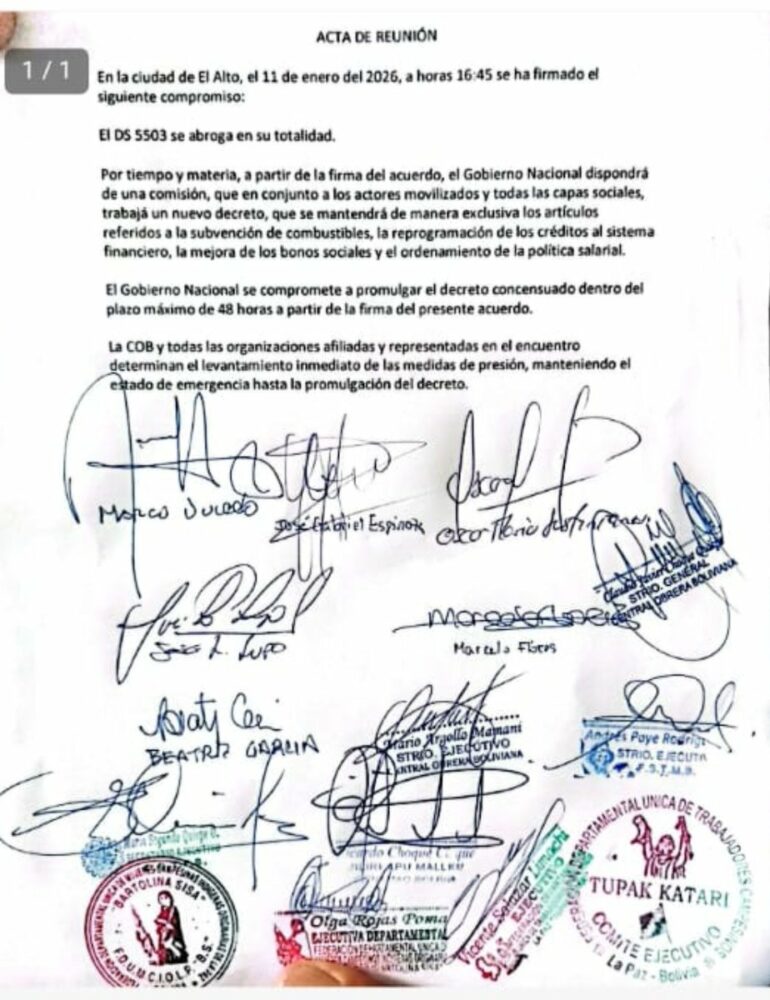 1 / 1
ACTA DE REUNIÓN
En la ciudad de El Alto, el 11 de enero del 2026, a horas 16:45 se ha firmado el
siguiente compromiso:
El DS 5503 se abroga en su totalidad.
Por tiempo y materia, a partir de la firma del acuerdo, el Gobierno Nacional dispondrá
de una comisión, que en conjunto a los actores movilizados y todas las capas sociales,
trabajá un nuevo decreto, que se mantendrá de manera exclusiva los artículos
referidos a la subvención de combustibles, la reprogramación de los créditos al sistema
financiero, la mejora de los bonos sociales y el ordenamiento de la política salarial.
El Gobierno Nacional se compromete a promulgar el decreto concensuado dentro del
plazo máximo de 48 horas a partir de la firma del presente acuerdo.
La COB y todas las organizaciones afiliadas y representadas en el encuentro
determinan el levantamiento inmediato de las medidas de presión, manteniendo el
estado de emergencia hasta la promulgación del decreto.
José Gabriel Espinoza
STRIO. GENERAL
CENTRAL OBRERA BOLIVIANA
LUPO
BEATRIZ GARCIA
Mario Argollo Mamani
STRIO. EJECUTIVO
CENTRAL OBRERA BOLIVIANA
STRIO. EJECUTI
F.S.T.M.B.
"BARTOLINA SISA"
Olga Rojas Poma
EJECUTIVA DEPARTAMENTAL
Vicente Salazar
EJECUTIVO
DEPARTAMENTAL UNICA DE TRABAJADORES CAMPESINOS
TUPAK KATARI
COMITE EJECUTIVO
La Paz - Bolivia